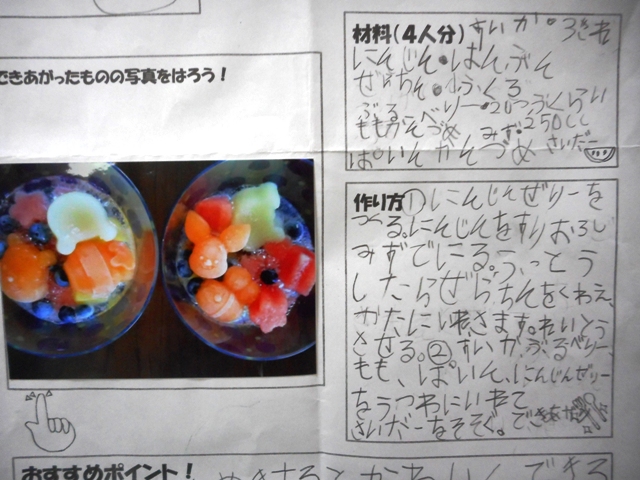 できあがったものの写真をはろう！
材料（4人分）すいか・3ぎれ
にんじん・はんぶん
ぜらちん・小ふくろ
ぶるーべりー・20つぶくらい
ももかんづめ みず・250cc
ぱいんかんづめ さいだー
作り方①にんじんぜりーを
つくる。にんじんをすりおろし
みずでにる。ふっとう
したらぜらちんをくわえ、
かたにいれさます。れいとう
させる。②すいか、ぶるーべりー、
もも、ぱいん、にんじんぜりー
をうつわにいれて
さいだーをそそぐ。できあがり
おすすめポイント！